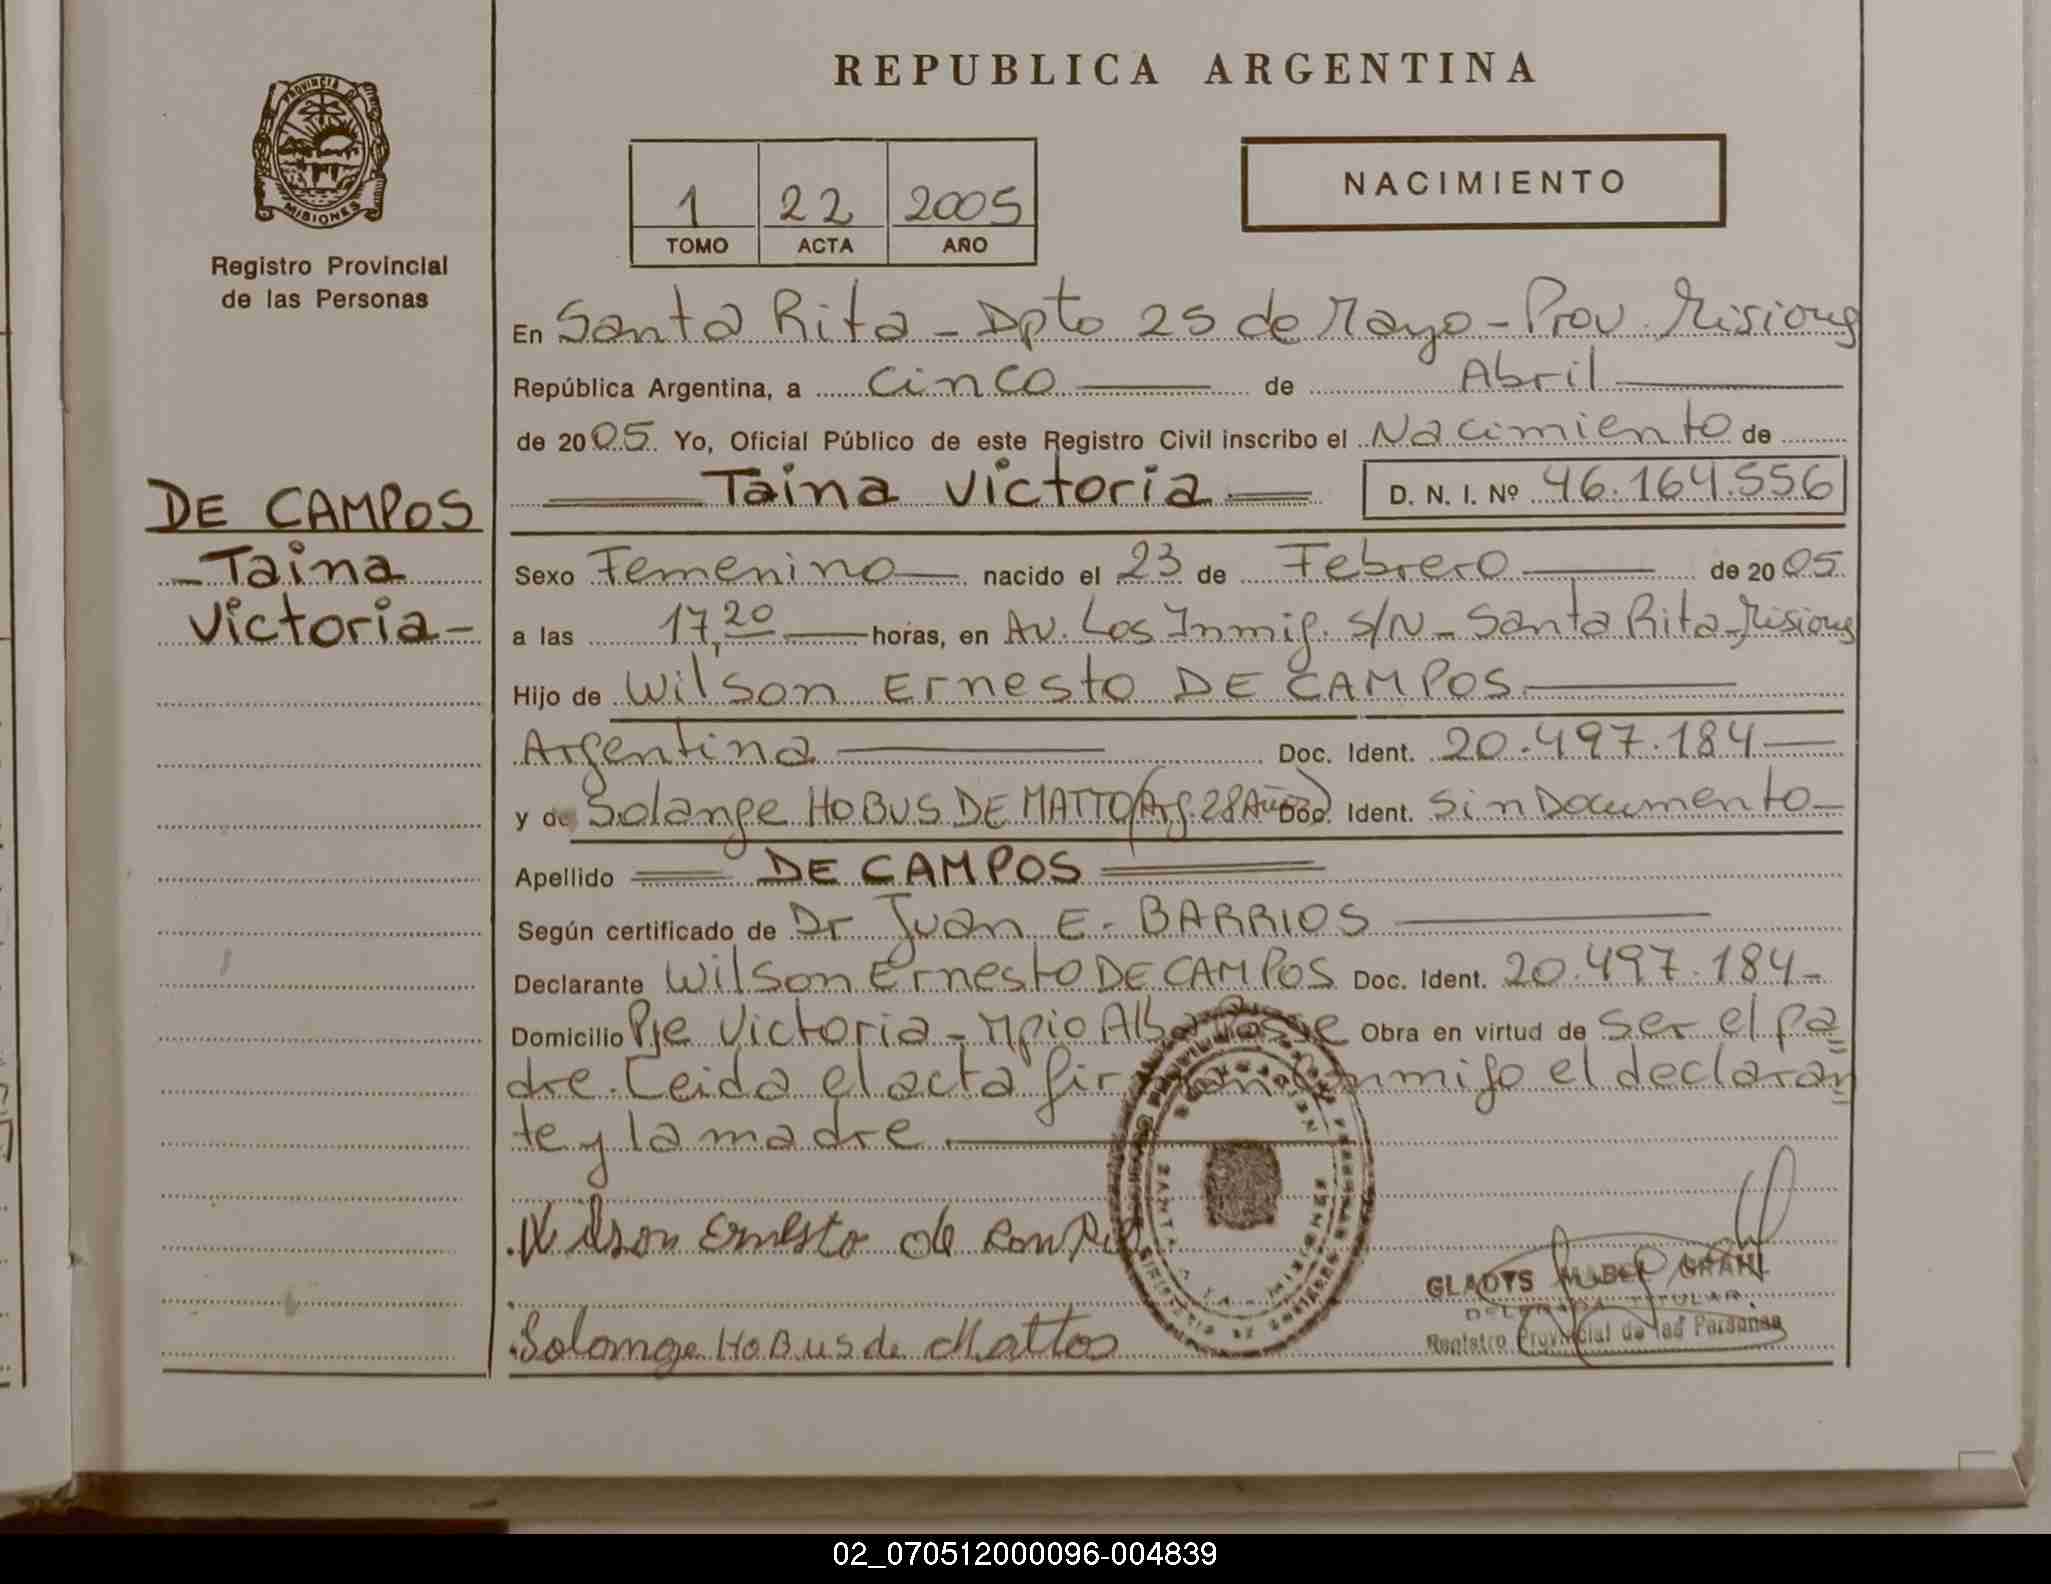 REPUBLICA ARGENTINA
PROVINCIA DE
MISIONES
Registro Provincial
de las Personas
1 22 2005
TOMO ACTA AÑO
NACIMIENTO
En Santa Rita - Dpto 25 de Mayo - Prov. Misiones
República Argentina, a cinco de Abril
de 2005. Yo, Oficial Público de este Registro Civil inscribo el Nacimiento de
Taina Victoria D. N. I. Nº 46.164.556
DE CAMPOS
- Taina
Victoria -
Sexo Femenino nacido el 23 de Febrero de 2005
a las 17,20 horas, en Av. Los Inmig. S/N - Santa Rita - Misiones
Hijo de Wilson Ernesto DE CAMPOS
Argentina Doc. Ident. 20.497.184
y de Solange HOBUS DE MATTO (Arg. 28 Años) Doc. Ident. Sin Documento
Apellido DE CAMPOS
Según certificado de Dr Juan E. BARRIOS
Declarante Wilson Ernesto DE CAMPOS Doc. Ident. 20.497.184
Domicilio Pje Victoria - Mpio Alba Posse Obra en virtud de ser el pa
dre. Leida el acta firman conmigo el declaran
te y la madre
Wilson Ernesto de
Solange HOBUS de Mattos
GLADYS MABEL GRAHL
DELEGADA TITULAR
Registro Provincial de las Personas
02_070512000096-004839